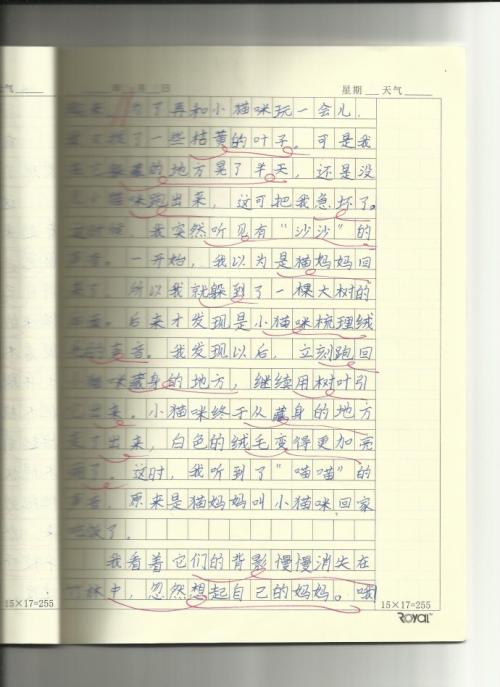 天气 年 月 日 星期 天气
为了再和小猫咪玩一会儿,
了一些桔黄的叶子。可是我
的地方晃了半天,还是没
小猫咪跑出来,这可把我急坏了。
这时候,我突然听见有“沙沙”的
声音。一开始,我以为是猫妈妈回
来了,所以我就躲到了一棵大树的
后面。后来才发现是小猫咪梳理绒
毛的声音。我发现以后,立刻跑回
猫咪藏身的地方,继续用树叶引
出来。小猫咪终于从藏身的地方
走了出来,白色的绒毛变得更加亮
丽了。这时,我听到了“喵喵”的
声音,原来是猫妈妈叫小猫咪回家
吃饭了。
我看着它们的背影慢慢消失在
竹林中,忽然想起自己的妈妈。哦
15×17=255 15×17=255
ROYAL